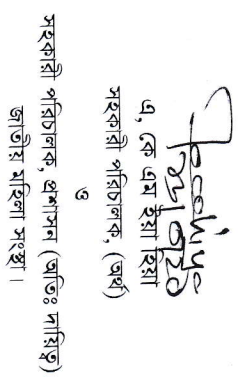 এ, কে এম ইয়াহিয়া
সহকারী পরিচালক, (অর্থ)
ও
সহকারী পরিচালক, প্রশাসন (অতিঃ দায়িত্ব)
জাতীয় মহিলা সংস্থা।